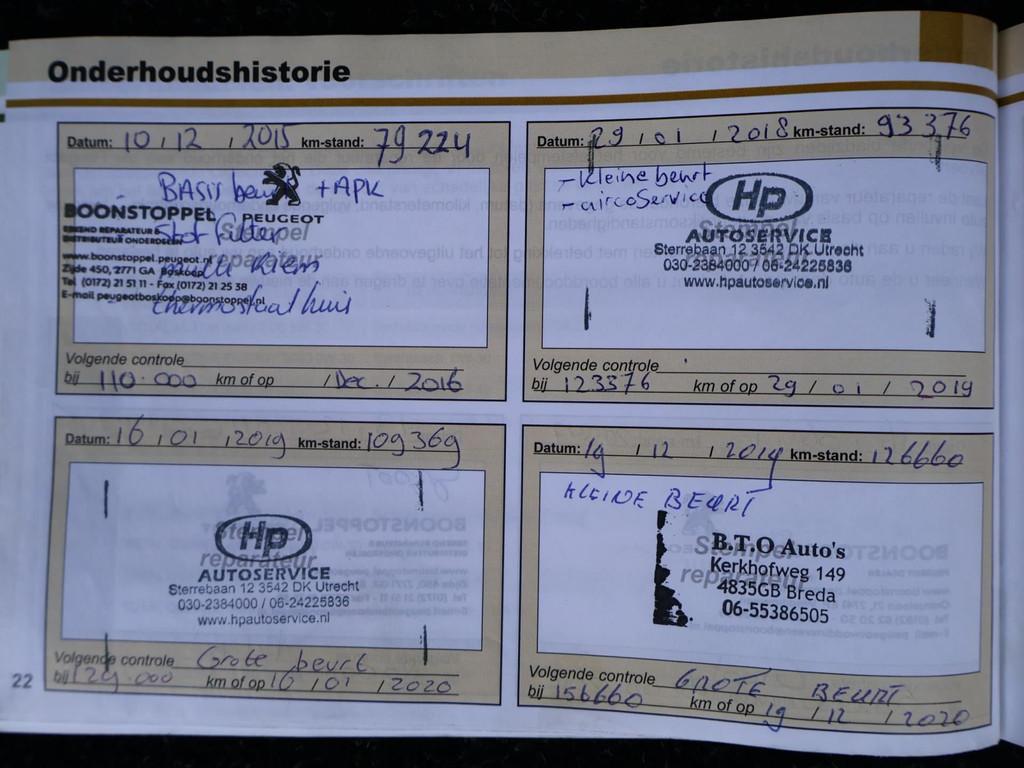 Onderhoudshistorie
Datum: 10 / 12 / 2015 km-stand: 79224
BASIS beurt + APK
BOONSTOPPEL PEUGEOT
ERKEND REPARATEUR &
DISTRIBUTEUR ONDERDELEN
Stof filter
Stempel
reparateur
www.boonstoppel.peugeot.nl
Zijde 450, 2771 GA Boskoop
Tel (0172) 21 51 11 - Fax (0172) 21 25 38
E-mail peugeotboskoop@boonstoppel.nl
thermostaathuis
Volgende controle
bij 110.000 km of op / Dec. / 2016
Datum: 29 / 01 / 2018 km-stand: 93376
- Kleine beurt
- aircoService
Hp
AUTOSERVICE
Stempel
reparateur
Sterrebaan 12 3542 DK Utrecht
030-2384000 / 06-24225836
www.hpautoservice.nl
Volgende controle
bij 123376 km of op 29 / 01 / 2019
Datum: 16 / 01 / 2019 km-stand: 109369
Hp
Stempel
reparateur
AUTOSERVICE
Sterrebaan 12 3542 DK Utrecht
030-2384000 / 06-24225836
www.hpautoservice.nl
Volgende controle Grote beurt
bij 129.000 km of op 16 / 01 / 2020
Datum: 19 / 12 / 2019 km-stand: 126660
KLEINE BEURT
Stempel
reparateur
B.T.O Auto's
Kerkhofweg 149
4835GB Breda
06-55386505
Volgende controle GROTE BEURT
bij 156660 km of op 19 / 12 / 2020
22